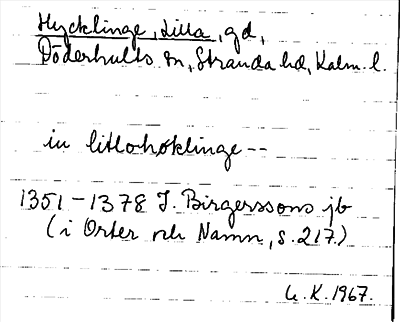 Hycklinge, Lilla, gd,
Döderhults sn, Stranda hd, Kalm. l.
in litlohøklinge--
1351-1378 J. Birgerssons jb
(i Orter och Namn, s. 217.)
G. K. 1967.